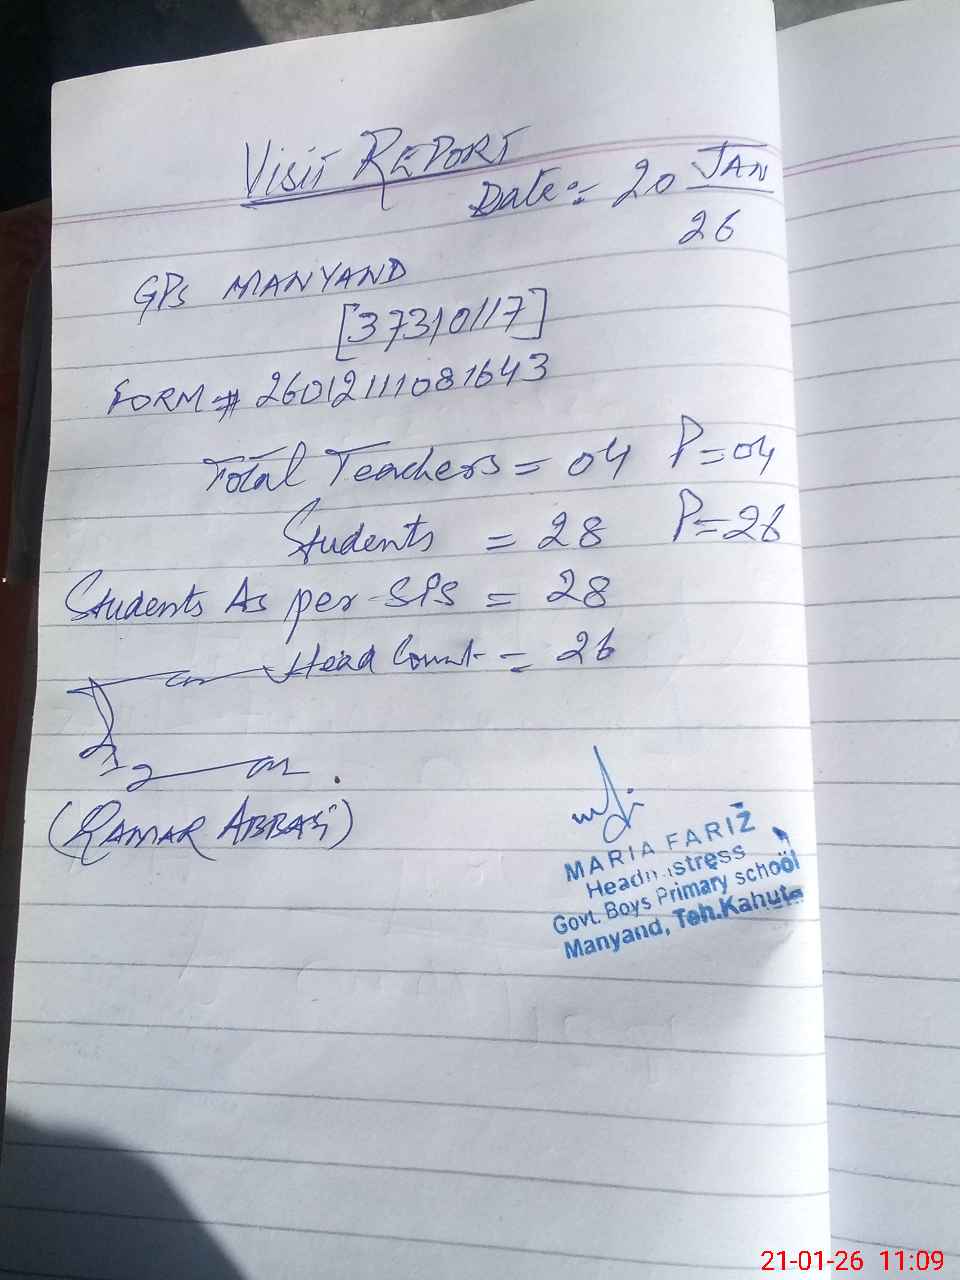 VISIT REPORT
Date:- 20 JAN
26
GPS MANYAND
[37310117]
FORM # 26012111081643
Total Teachers = 04 P=04
Students = 28 P=26
Students As per SPS = 28
Head Count = 26
(QAMAR ABBASI)
MARIA FARIZ
Headmistress
Govt. Boys Primary school
Manyand, Teh.Kahuta
21-01-26 11:09